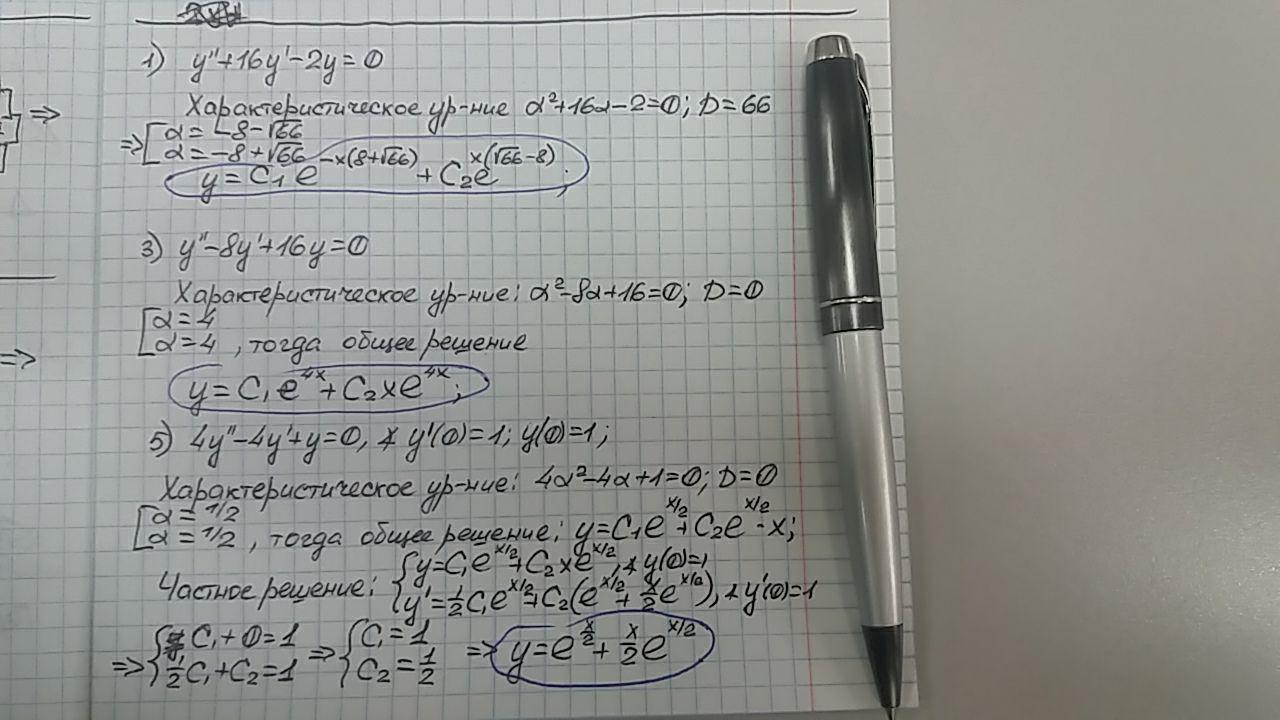 1) y''+16y'-2y=0
Характеристическое ур-ние α²+16α-2=0; D=66
⇒
⇒[α=-8-√66
α=-8+√66
y=C₁e^{-x(8+√66)}+C₂e^{x(√66-8)};
3) y''-8y'+16y=0
Характеристическое ур-ние: α²-8α+16=0; D=0
[α=4
α=4, тогда общее решение
⇒
y=C₁e^{4x}+C₂xe^{4x};
5) 4y''-4y'+y=0, y'(0)=1; y(0)=1;
Характеристическое ур-ние: 4α²-4α+1=0; D=0
[α=1/2
α=1/2, тогда общее решение: y=C₁e^{x/2}+C₂e^{x/2}·x;
Частное решение: {y=C₁e^{x/2}+C₂xe^{x/2}, y(0)=1
y'=½C₁e^{x/2}+C₂(e^{x/2}+x/2 e^{x/2}), y'(0)=1
⇒{C₁+0=1 ⇒{C₁=1 ⇒ y=e^{x/2}+x/2 e^{x/2}
½C₁+C₂=1 C₂=½